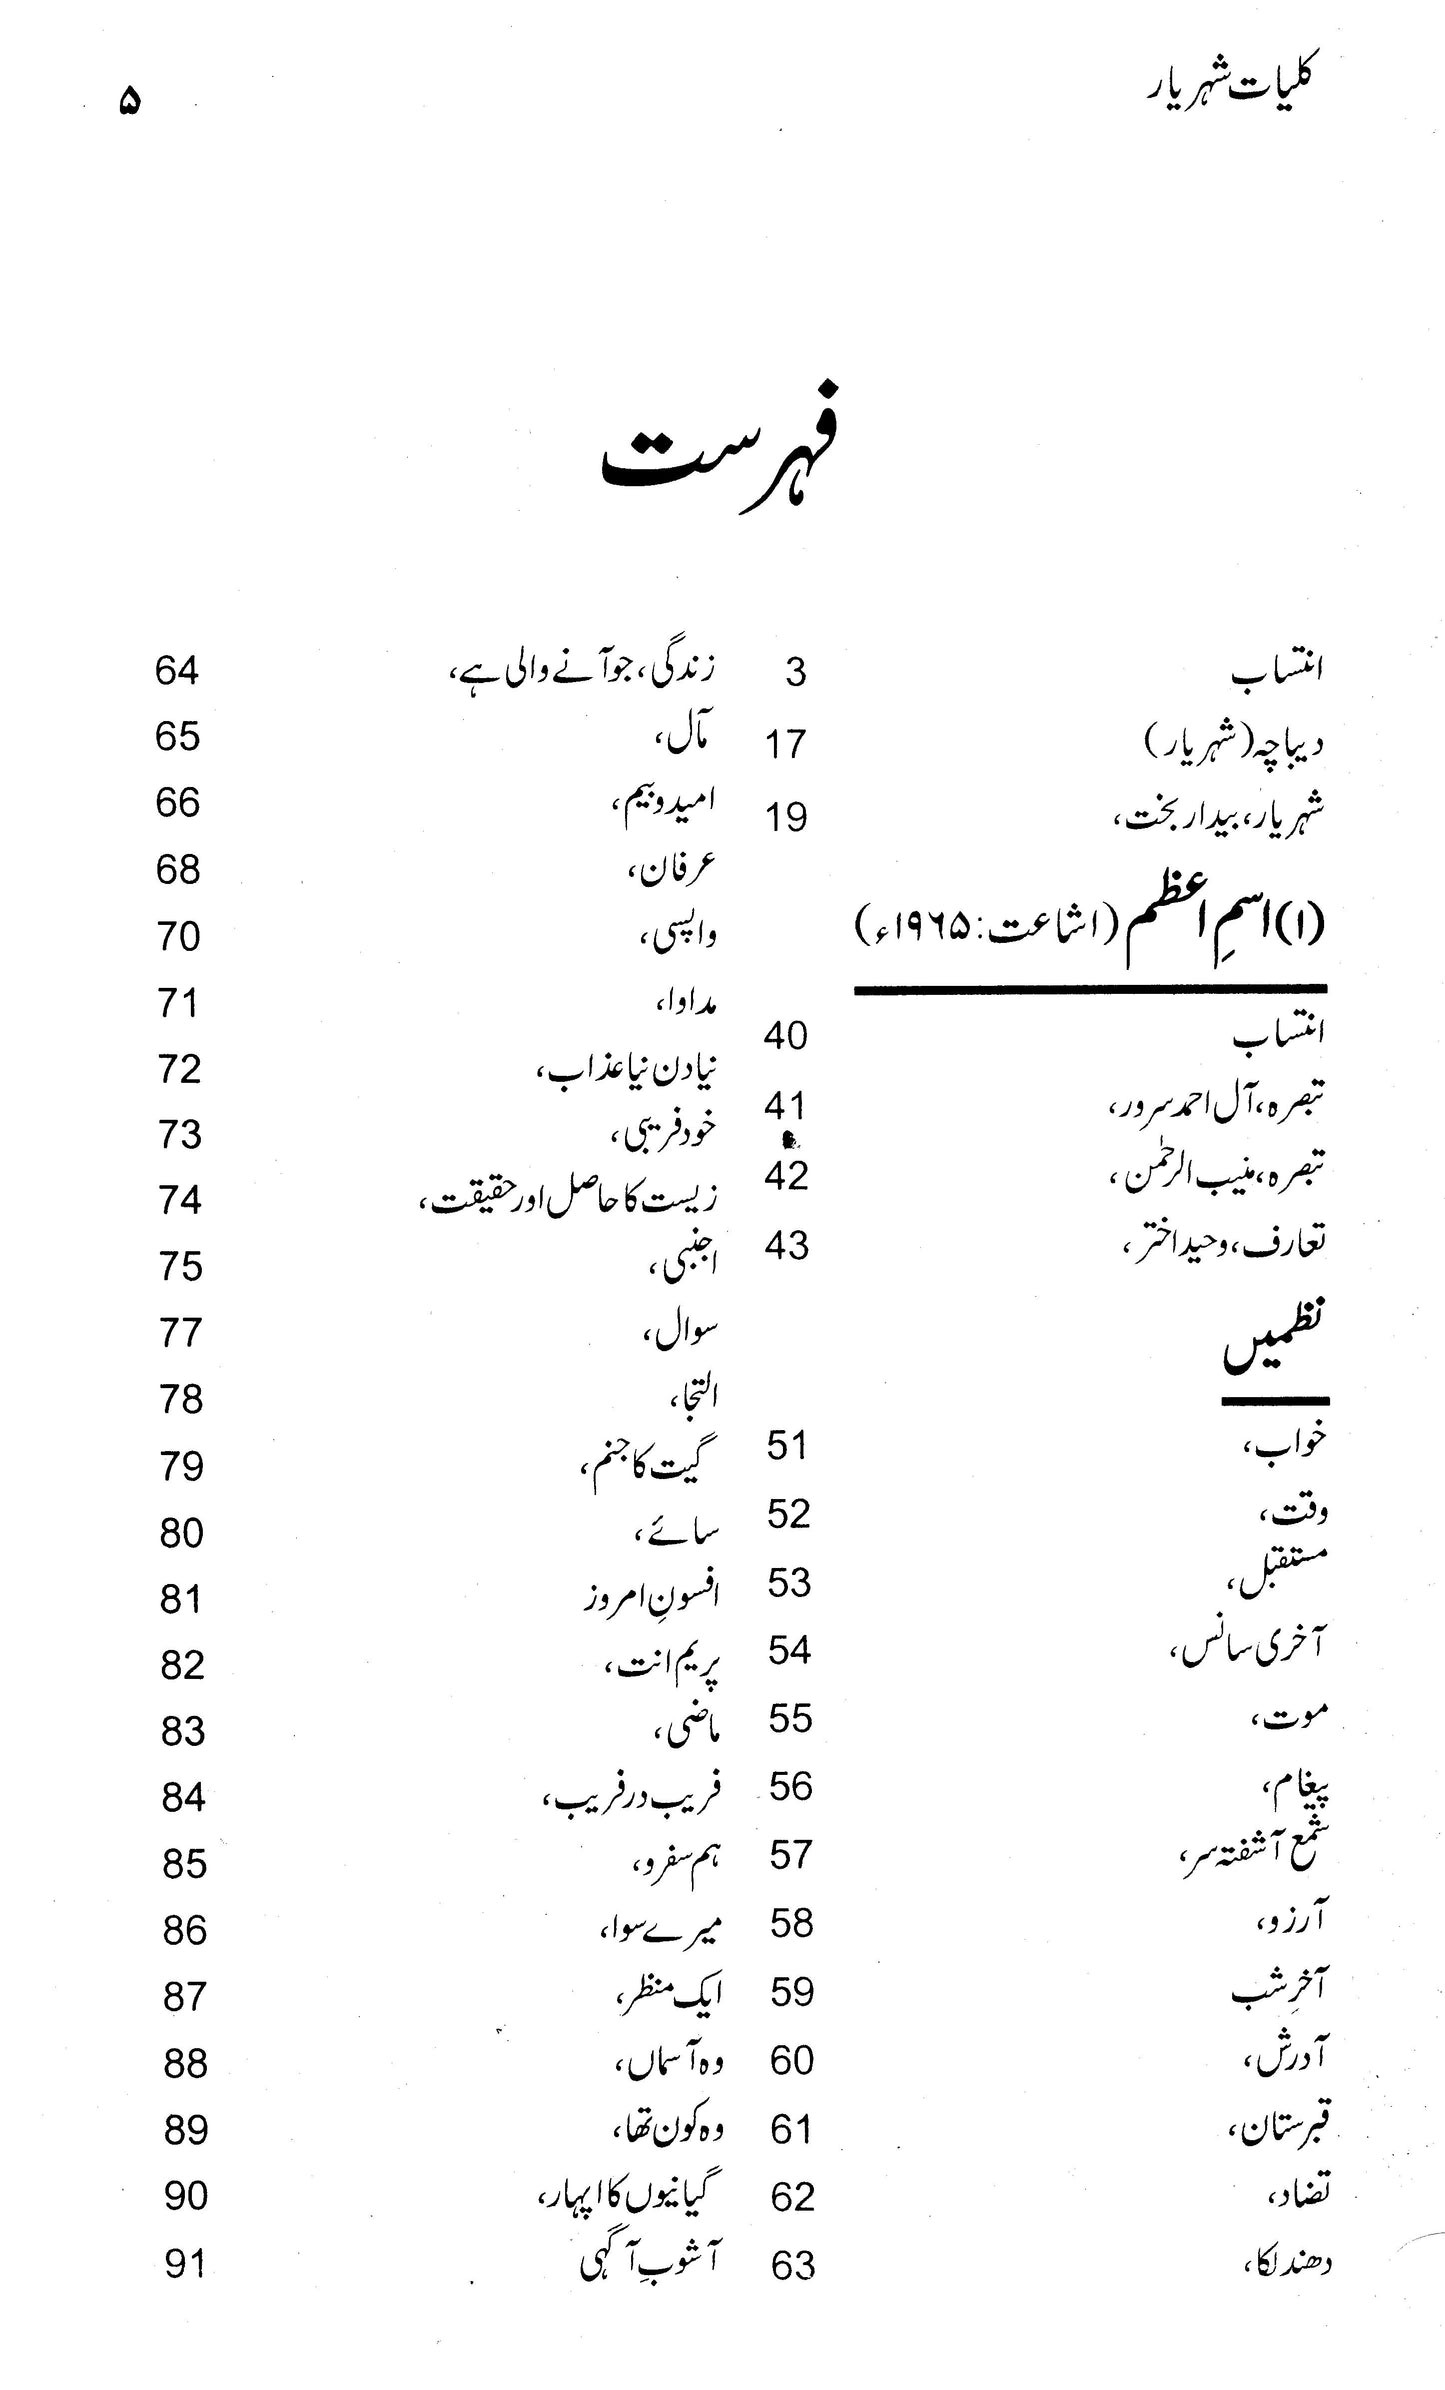 کلیات شہریار
۵
فہرست
انتساب 3
دیباچہ (شہریار) 17
شہریار، بیدار بخت، 19
(۱) اسمِ اعظم (اشاعت: ۱۹۶۵ء)
انتساب 40
تبصرہ، آل احمد سرور، 41
تبصرہ، منیب الرحمٰن، 42
تعارف، وحید اختر، 43
نظمیں
خواب، 51
وقت، 52
مستقبل، 53
آخری سانس، 54
موت، 55
پیغام، 56
شمع آشفتہ سر، 57
آرزو، 58
آخرِ شب 59
آدرش، 60
قبرستان، 61
تضاد، 62
دھندلکا، 63
زندگی، جو آنے والی ہے، 64
مآل، 65
امید و بیم، 66
عرفان، 68
واپسی، 70
مداوا، 71
نیا دن نیا عذاب، 72
خود فریبی، 73
زیست کا حاصل اور حقیقت، 74
اجنبی، 75
سوال، 77
التجا، 78
گیت کا جنم، 79
سائے، 80
افسونِ امروز 81
پریم انت، 82
ماضی، 83
فریب در فریب، 84
ہم سفرو، 85
میرے سوا، 86
ایک منظر، 87
وہ آسماں، 88
وہ کون تھا، 89
گیانیوں کا اپہار، 90
آشوبِ آگہی 91